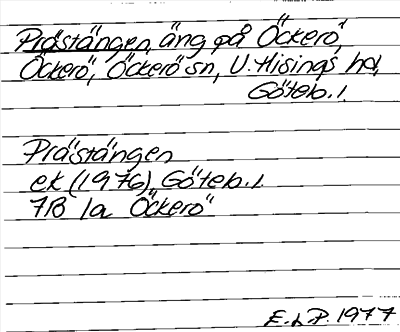 Prästängen, äng på Öckerö,
Öckerö, Öckerö sn, V. Hisings hd,
Göteb. l.
Prästängen
ek (1976), Göteb. l.
7B 1a Öckerö
E.b.P. 1977